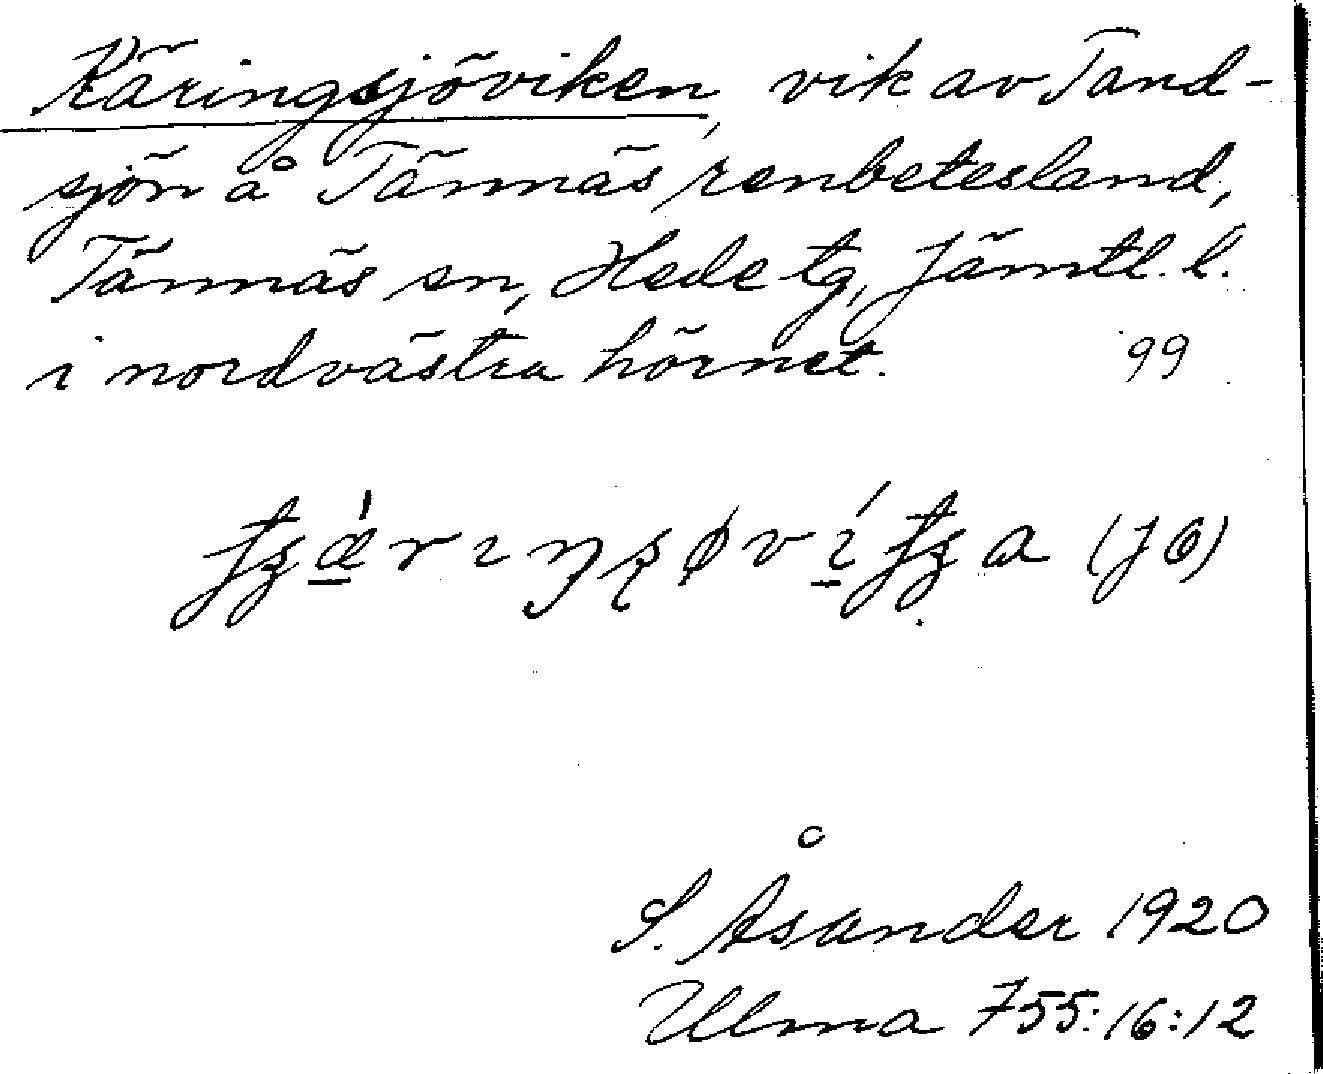 Käringsjöviken, vik av Tand-
sjön å Tännäs renbetesland,
Tännäs sn, Hede tg, Jämtl. l.
i nordvästra hörnet. 99
(JÖ)
S. Åsander 1920
Ulma 755:16:12